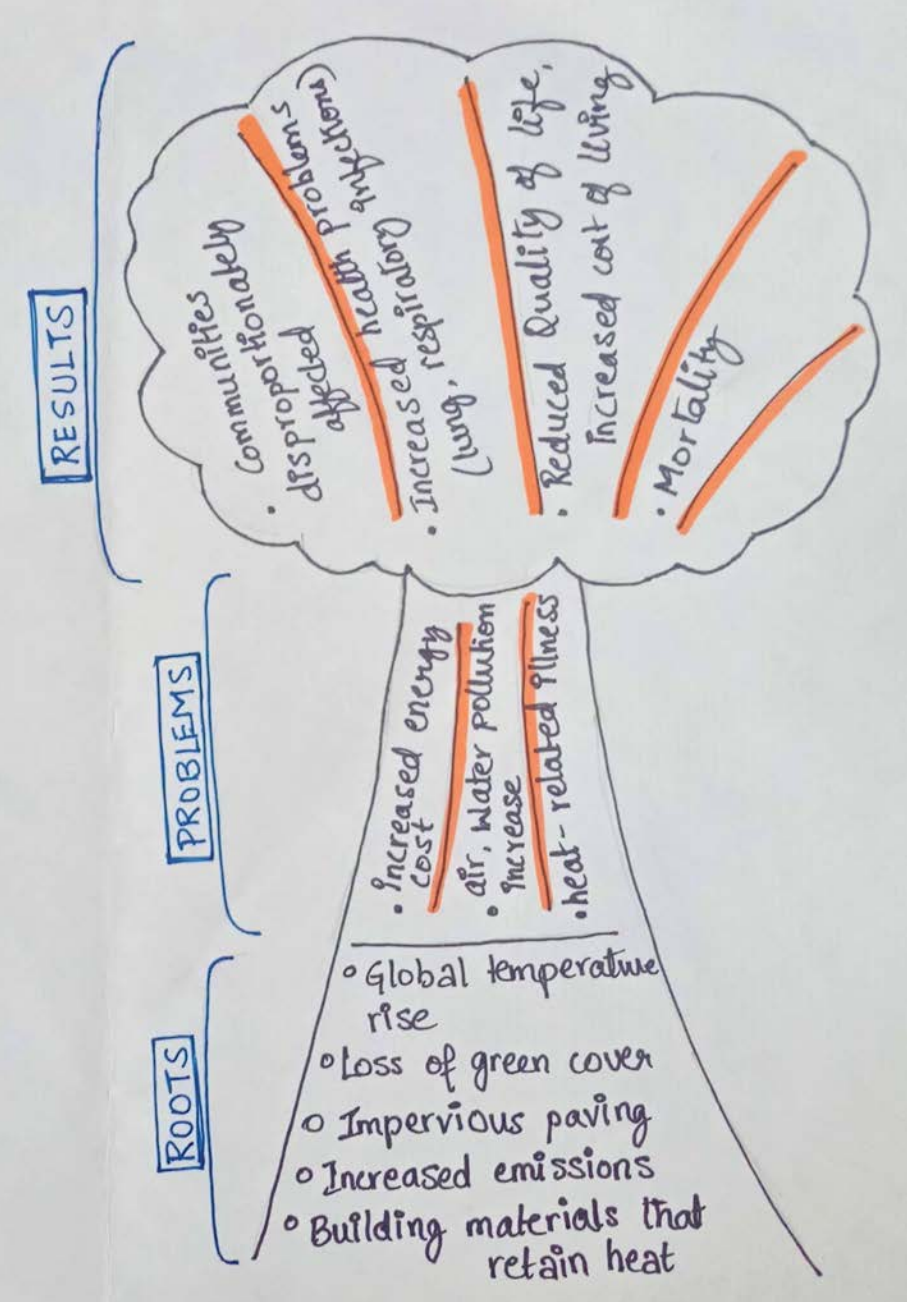 RESULTS
• Communities
disproportionately
affected
• Increased health problems
(lung, respiratory infections)
• Reduced Quality of life,
Increased cost of living
• Mortality
PROBLEMS
• Increased energy
cost
• air, water pollution
increase
• heat-related illness
ROOTS
○ Global temperature
rise
○ Loss of green cover
○ Impervious paving
○ Increased emissions
○ Building materials that
retain heat